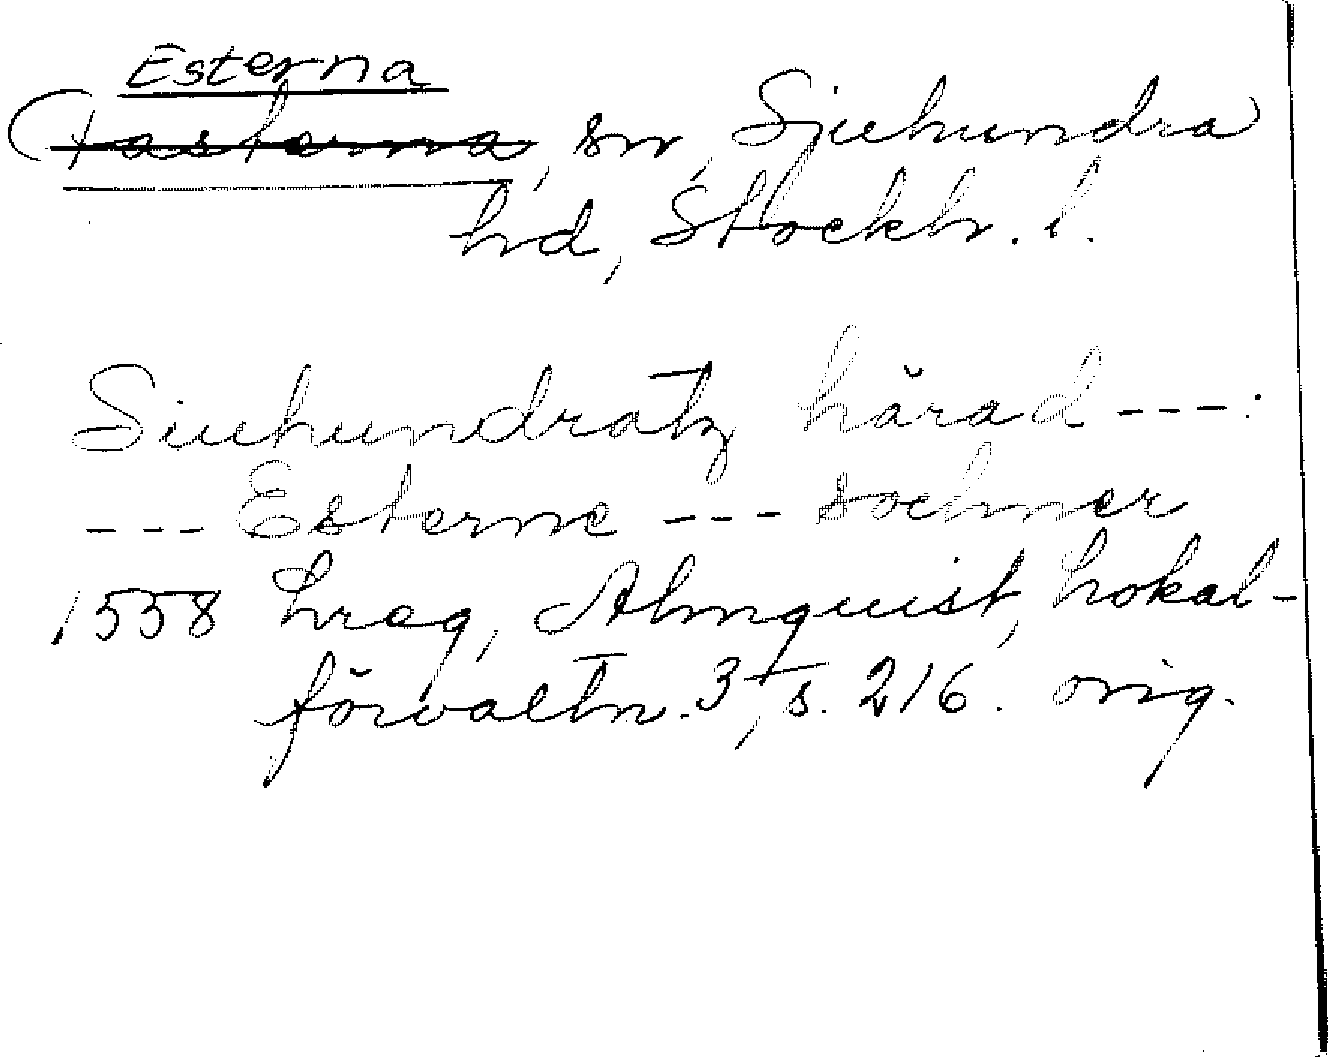 Esterna
(Fasterna, sn, Sjuhundra
hd, Stockh. l.
Siuhundratz härad ---:
--- Esterne --- sochner
1558 hreg, Almquist, Lokal-
förvaltn. 3, s. 216. orig.